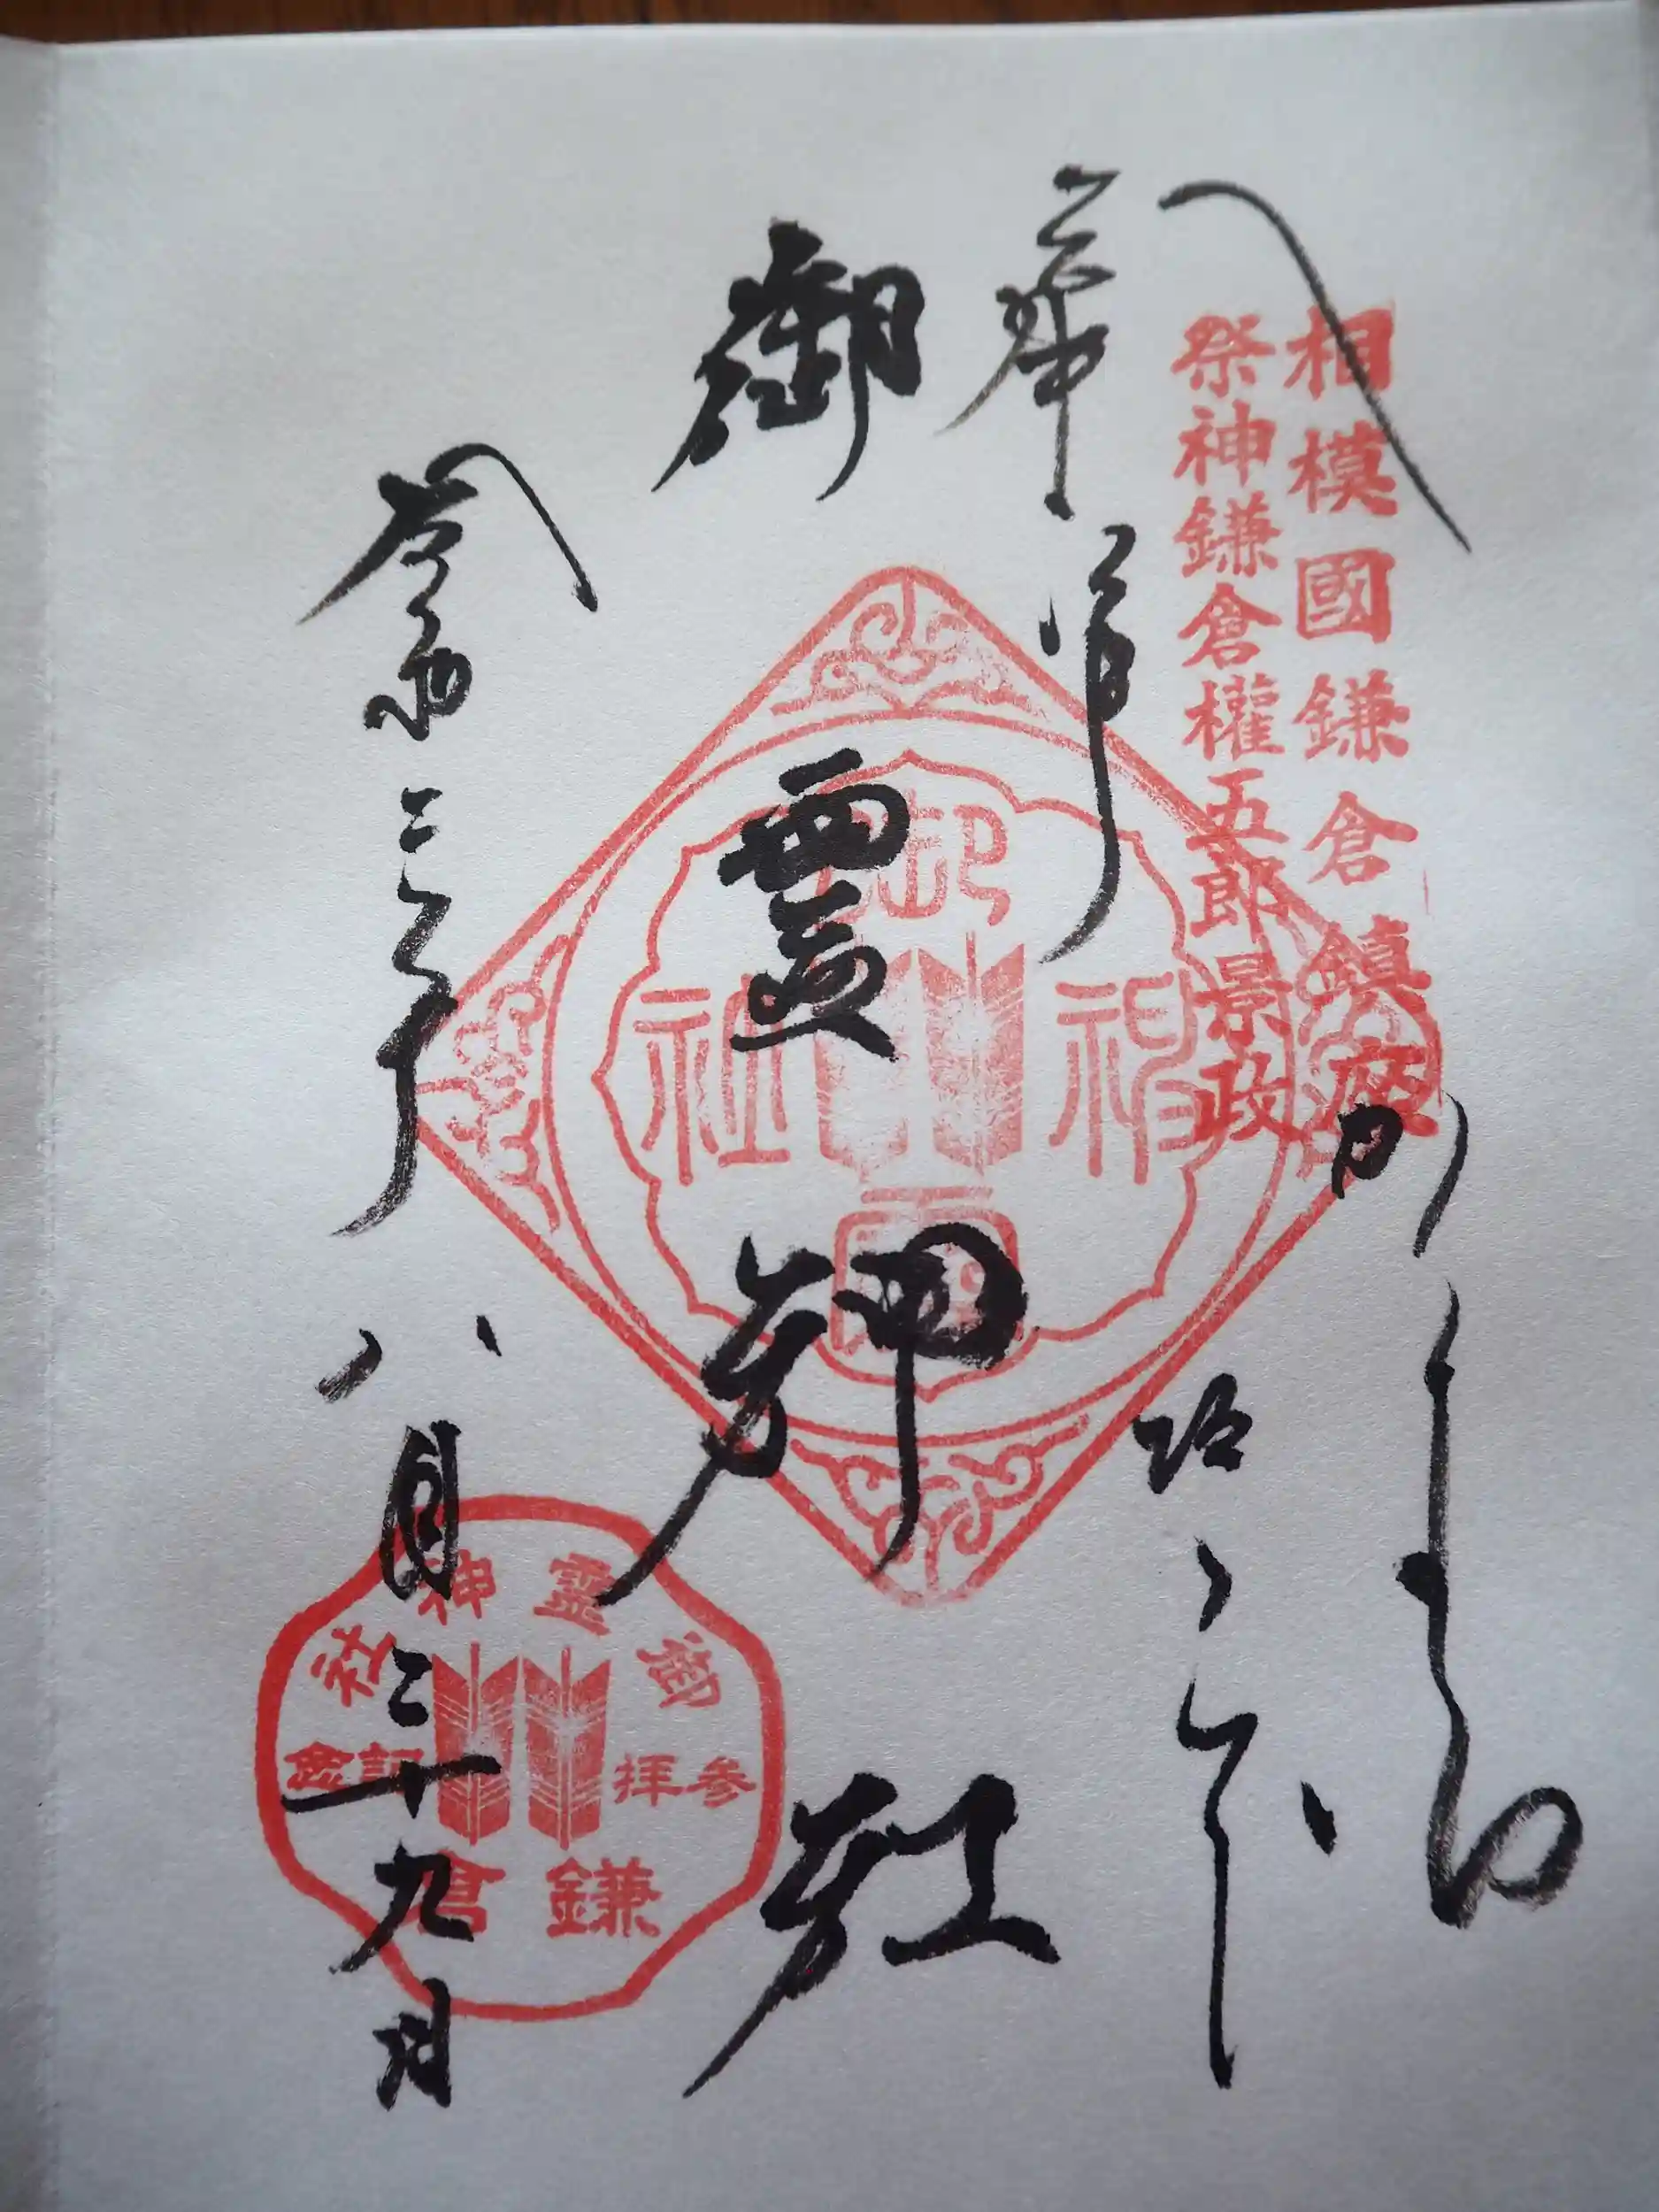 相模國鎌倉鎮座
祭神鎌倉權五郎景政
奉拝
かまくら
坂ノ下
御靈神社
令和三年八月二十九日
御靈神社
参拝記念
鎌倉